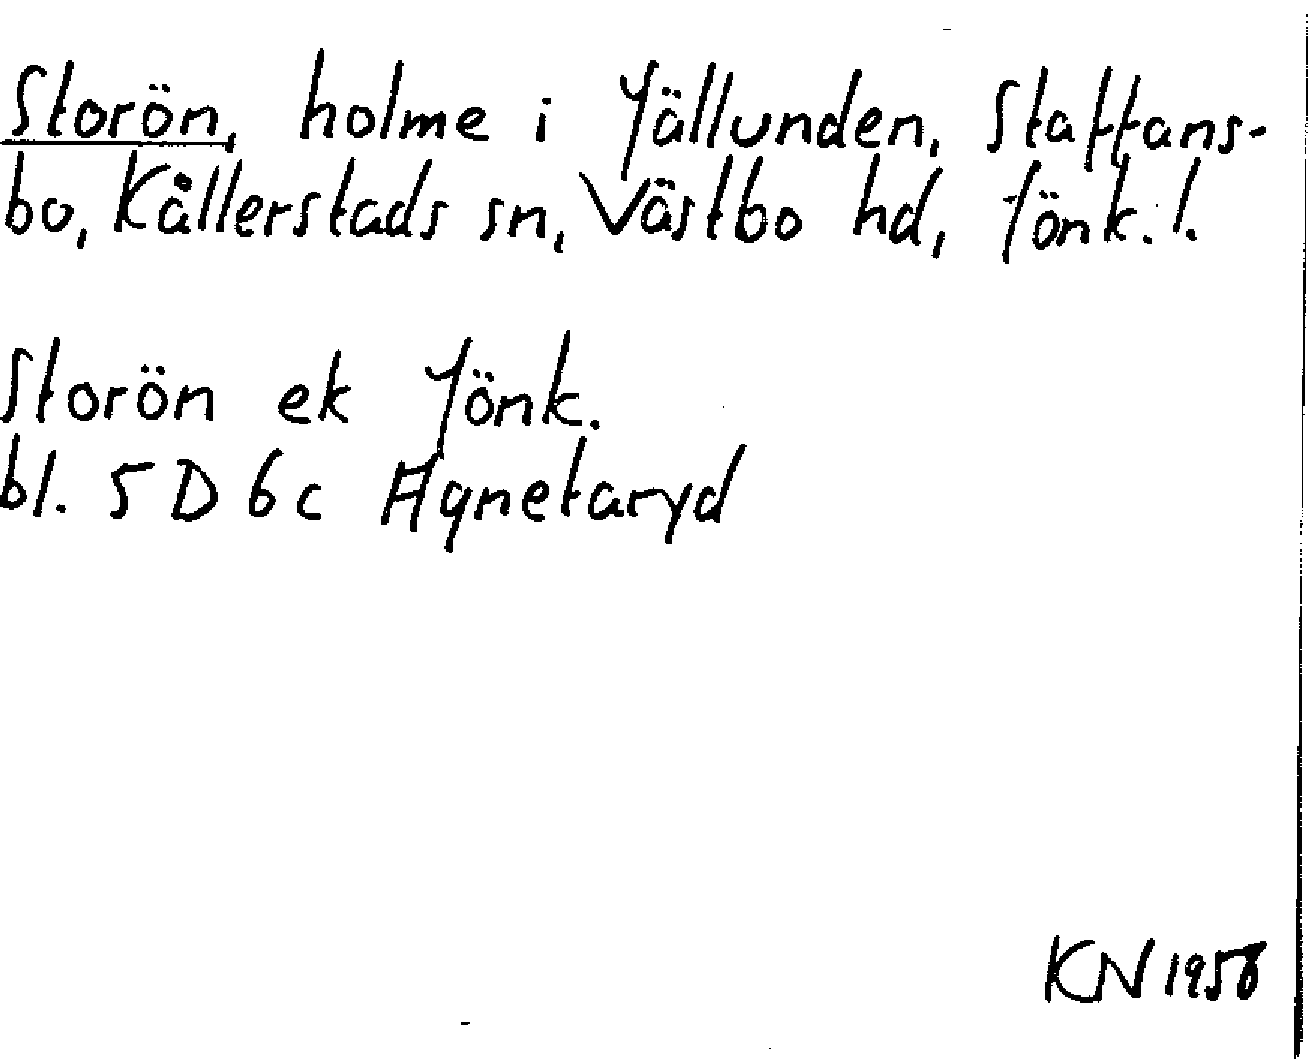 Storön, holme i Jällunden, Staffans-
bo, Kållerstads sn, Västbo hd, Jönk. l.
Storön ek Jönk.
bl. 5 D 6c Agnetaryd
KN 1958